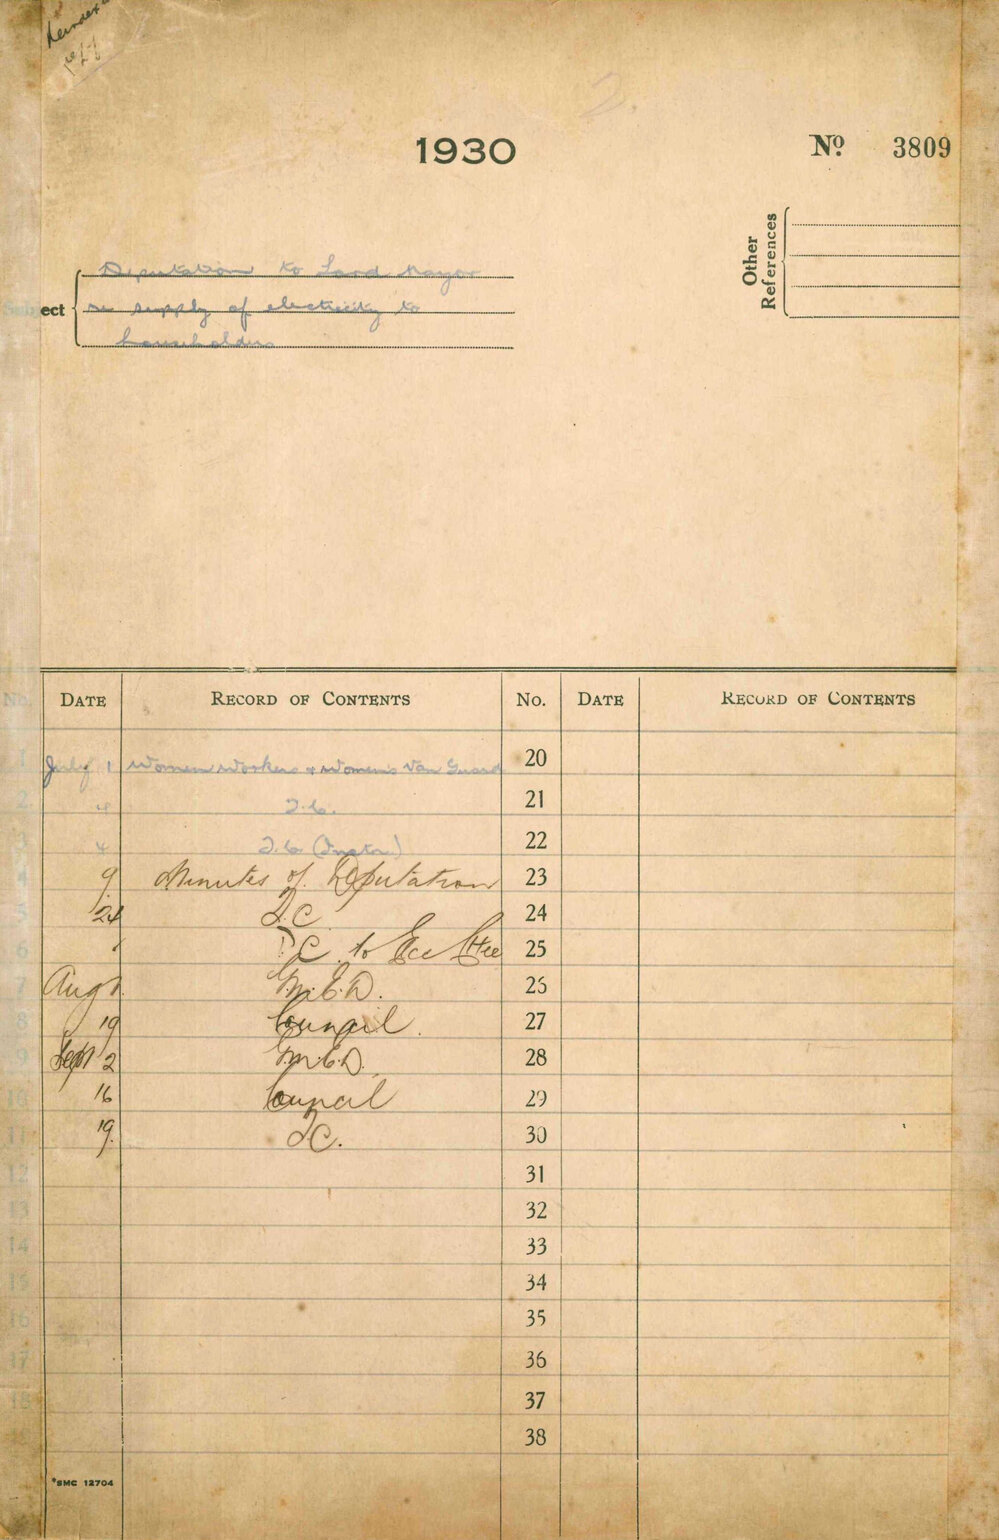 Reindexed
1930
No 3809
Other References
Subject
Deputation to Lord Mayor
re supply of electricity to
householders
No. DATE RECORD OF CONTENTS No. DATE RECORD OF CONTENTS
1 July 1 Women workers & Women's Van Guard 20
2 4 T.C. 21
3 4 T.C. (Instn) 22
4 9 Minutes of Deputation 23
5 24 T.C. 24
6 T.C. to Ecc Cttee 25
7 Aug 1 G.M.E.D. 26
8 19 Council. 27
9 Sept 2 G.M.E.D. 28
10 16 Council 29
11 19. T.C. 30
12 31
13 32
14 33
15 34
16 35
17 36
18 37
38
*SMC 12704